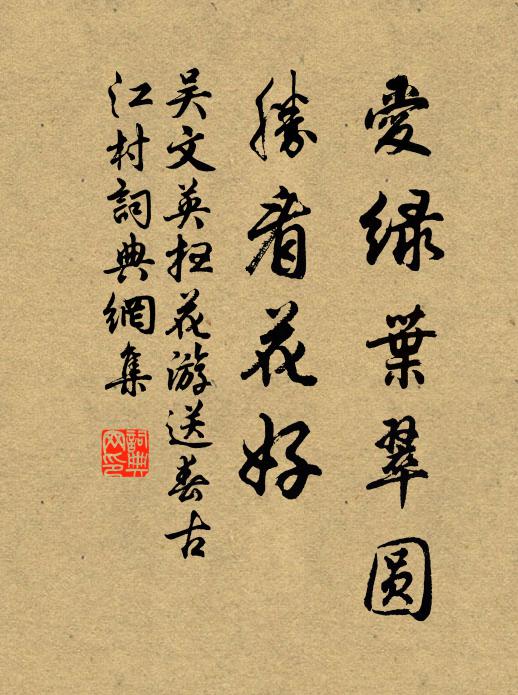 愛緑葉翠圆
勝看花好
吴文英扫花游送春古
江村詞典網集
詞典
网印